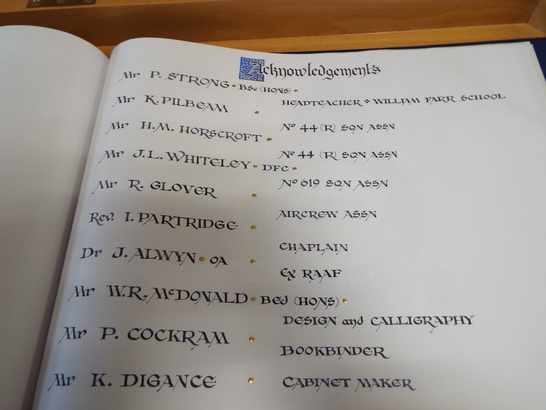 Acknowledgements
Mr P. STRONG • BSc (HONS) • HEADTEACHER • WILLIAM FARR SCHOOL
Mr K. PILBEAM • Nº 44 (R) SQN ASSN
Mr H.M. HORSCROFT • Nº 44 (R) SQN ASSN
Mr J.L. WHITELEY • DFC • Nº 619 SQN ASSN
Mr R. GLOVER • AIRCREW ASSN
Rev. I. PARTRIDGE • CHAPLAIN
Dr J. ALWYN • OA • Ex RAAF
Mr W.R. McDONALD • BEd (HONS) • DESIGN and CALLIGRAPHY
Mr P. COCKRAM • BOOKBINDER
Mr K. DIGANCE • CABINET MAKER